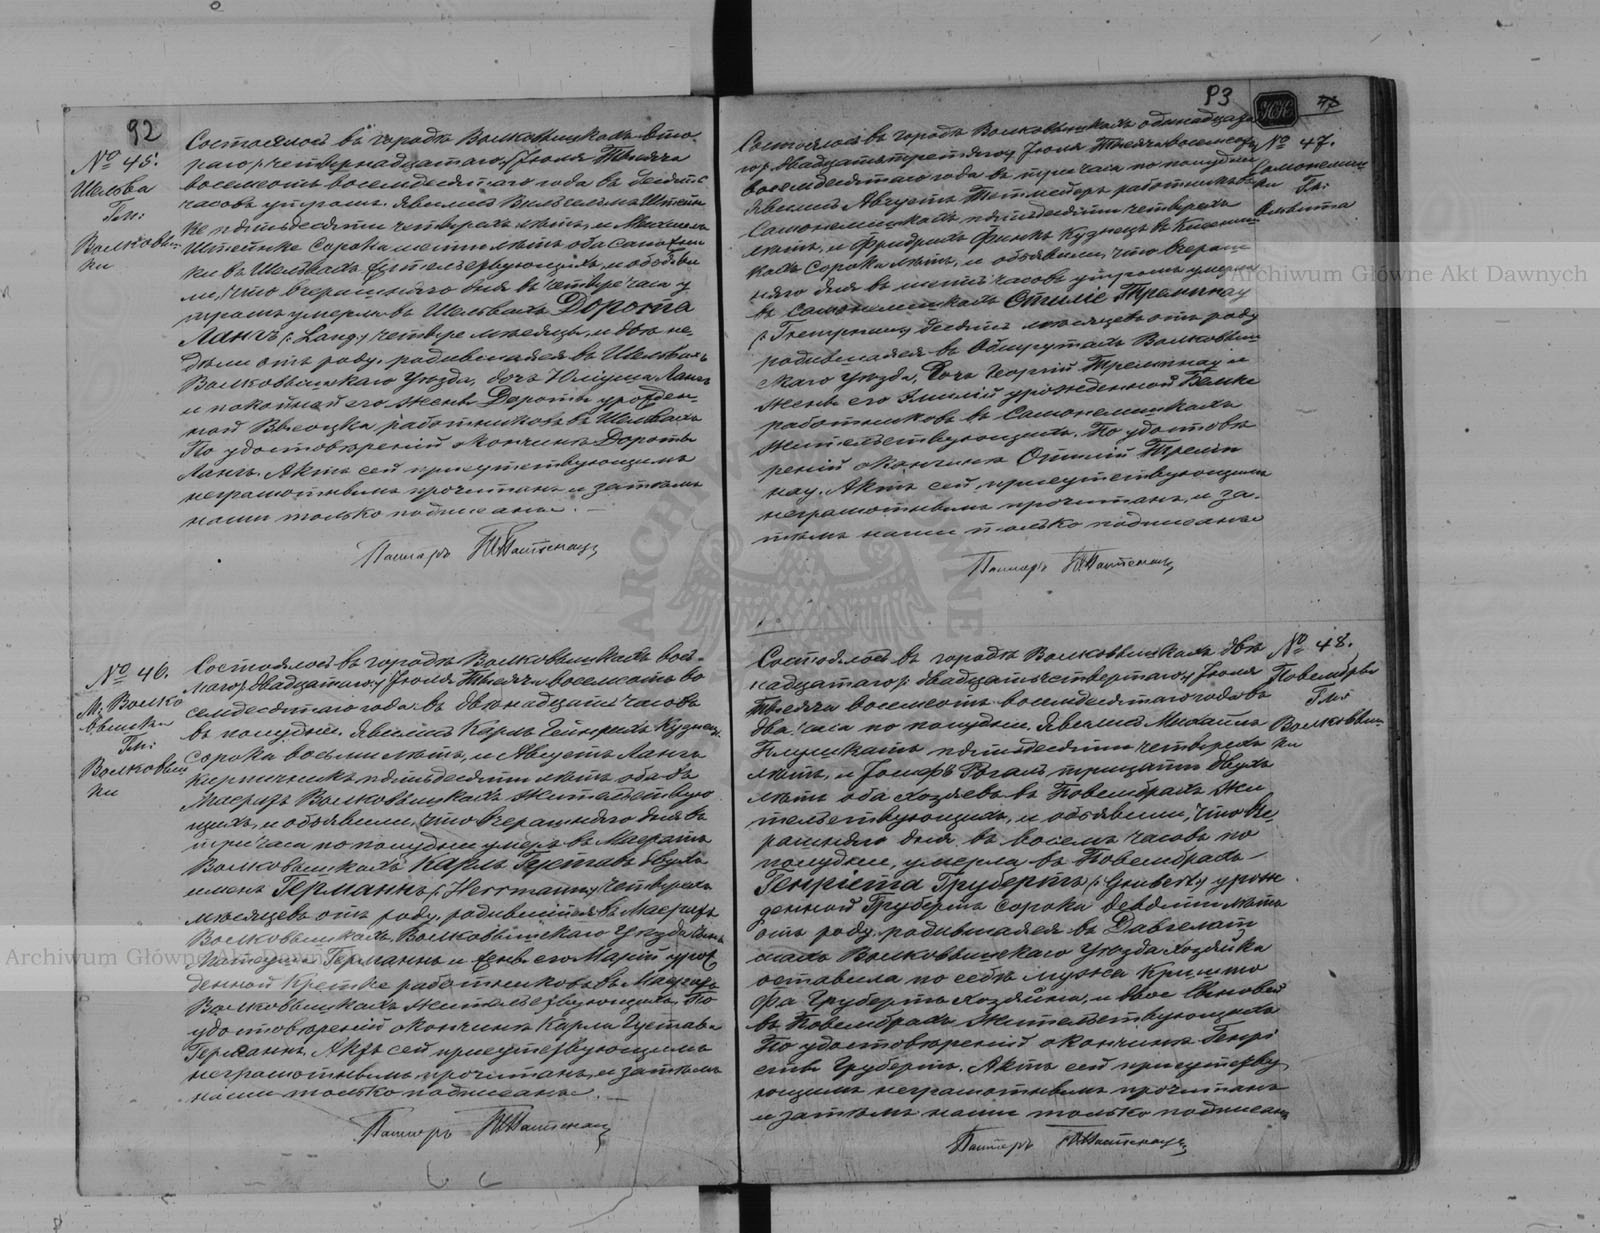 92
№ 45.
Шельва
Гм:
Волковыш
ки
Состоялось въ городѣ Волковышкахъ вто-
раго /: четырнадцатаго:/ Іюля Тысяча
восемьсотъ восемдесятаго года въ десять
часовъ утромъ. Явились Вильгельмъ Штейн
ке пятьдесяти четырехъ лѣтъ, и Михаилъ
Штейнке сорока лѣтъ оба
ки въ Шельвахъ жительствующіе, и объяви
ли, что вчерашняго дня въ четыре часа у
тромъ умерла въ Шельвахъ Дорота
Лангъ /: Lang:/ четыре мѣсяца, и двѣ не-
дѣли отъ роду, родившаяся въ Шельвахъ
Волковышскаго Уѣзда, дочь Юліуша Лангъ
и покойной его жены Дороты урожден-
ной Высоцка работниковъ въ Шельвахъ
По удостовѣреніи о кончинѣ Дороты
Лангъ. Актъ сей присутствующимъ
неграмотнымъ прочитанъ и затѣмъ
нами только подписанъ. —
Пасторъ
№ 46.
М. Волко
вышки
Гм:
Волковыш
ки
Состоялось въ городѣ Волковышкахъ вось-
маго /: двадцатаго:/ Іюля Тысяча восемьсотъ во
семдесятаго года въ двѣнадцать часовъ
въ полудни. Явились Карлъ Гейнрихъ Кузнец
сорока восьми лѣтъ, и Августъ Лангъ
кирпичникъ пятьдесяти лѣтъ оба въ
Маератъ Волковышкахъ жительствую
щихъ, и объявили, что вчерашняго дня въ
три часа по полудни умеръ въ Маератъ
Волковышкахъ Карлъ Густавъ двухъ
именъ Германнъ /: Herrmann:/ четырехъ
мѣсяцевъ отъ роду, родившійся въ Маератъ
Волковышкахъ, Волковышскаго Уѣзда сынъ
Германнъ и жены его Маріи урож
денной Кретке работниковъ въ Маератъ
Волковышкахъ жительствующихъ. По
удостовѣреніи о кончинѣ Карла Густава
Германнъ. Актъ сей присутствующимъ
неграмотнымъ прочитанъ, и затѣмъ
нами только подписанъ. —
Пасторъ
93
№ 47.
Самонелиш
ки
Гм:
Состоялось въ городѣ Волковышкахъ одинадцата
го /: двадцать третьяго:/ Іюля Тысяча восемьсотъ
восемдесятаго года въ три часа по полудни
Явились Августъ работникъ въ
Самонелишкахъ пятьдесяти четырехъ
лѣтъ, и Фридрихъ Финкъ Кузнецъ въ
кахъ сорока лѣтъ, и объявили, что вчераш
няго дня въ шесть часовъ утромъ умерла
въ Самонелишкахъ Отиліе Тремпнау
десять мѣсяцевъ отъ роду
родившаяся въ Обшрутахъ Волковыш-
скаго Уѣзда, дочь Георгій Тремпнау и
жены его Эмиліи урожденной
работниковъ въ Самонелишкахъ
жительствующихъ. По удостовѣ
реніи о кончинѣ Отиліи Тремп
нау. Актъ сей присутствующимъ
неграмотнымъ прочитанъ, и за-
тѣмъ нами только подписанъ
Пасторъ
№ 48.
Повембры
Гм:
Волковыш-
ки
Состоялось въ городѣ Волковышкахъ двѣ
надцатаго /: двадцать четвертаго:/ Іюля
Тысяча восемьсотъ восемдесятаго года въ
два часа по полудни. Явились Михаилъ
пятьдесяти четырехъ
лѣтъ, и Іосифъ Рогалъ тридцати двухъ
лѣтъ оба хозяевъ въ Повембрахъ жи
тельствующихъ, и объявили, что вче
рашняго дня въ восемь часовъ по
полудни, умерла въ Повембрахъ
Генріета Грубертъ /: Grubert:/ урож
денной Грубертъ сорока девяти лѣтъ
отъ роду, родившаяся въ
Волковышскаго Уѣзда хозяйка
оставила по себѣ мужа Кришто
фа Грубертъ хозяина, и двое сыновей
въ Повембрахъ жительствующихъ
По удостовѣреніи о кончинѣ Генрі
еты Грубертъ. Актъ сей присутству
ющимъ неграмотнымъ прочитанъ
и затѣмъ нами только подписанъ
Пасторъ
Archiwum Główne Akt Dawnych
Archiwum Główne Akt Dawnych